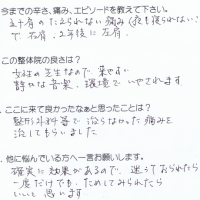 今までの辛さ、痛み、エピソードを教えて下さい。
五十肩の たえられない 痛み (夜も寝られない)
で 右肩、2年後に 左肩。
この整体院の良さは?
女性の先生なので 楽です
静かな音楽、環境で いやされます
ここに来て良かったなぁと思ったことは?
整形外科等で 治らなかった 痛みを
治してもらいました
他に悩んでいる方へ一言お願いします。
確実に 効果があるので、迷っておられたら
一度だけでも、ためしてみられたら
いいと 思います